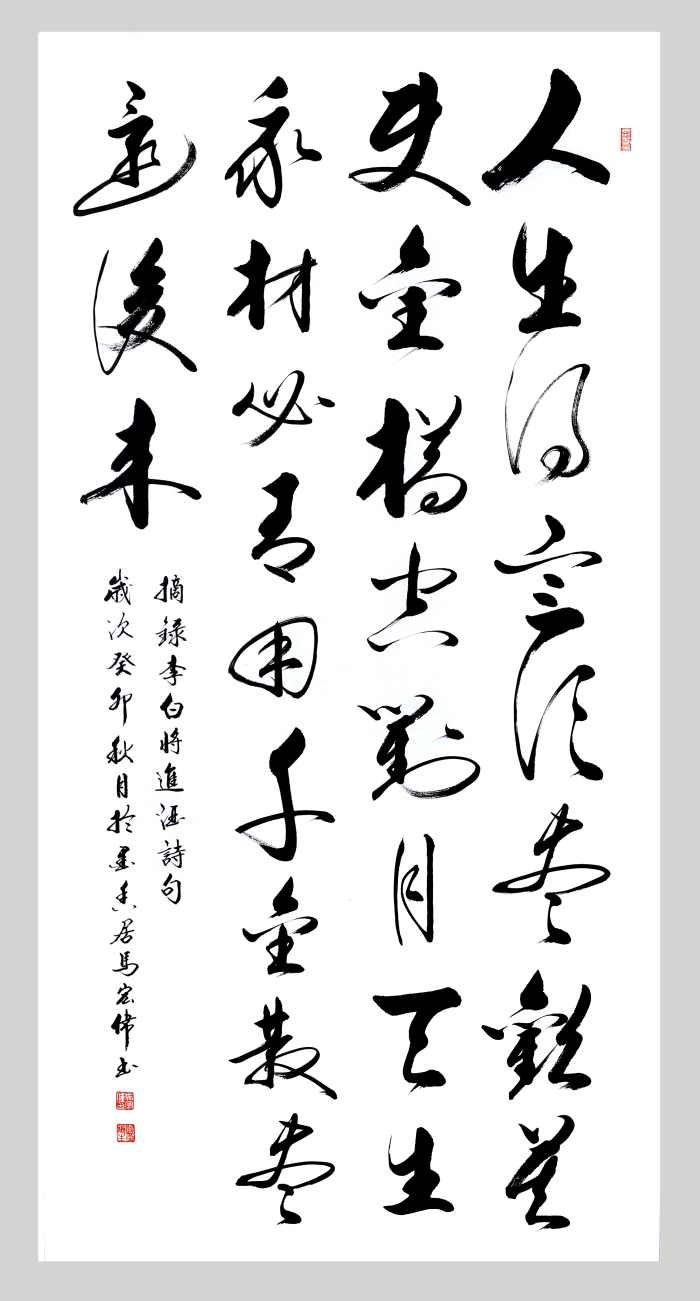 人生得意須盡歡莫
使金樽空對月天生
我材必有用千金散盡
還復来
摘錄李白將進酒詩句
歲次癸卯秋月於墨香居馬宏偉書